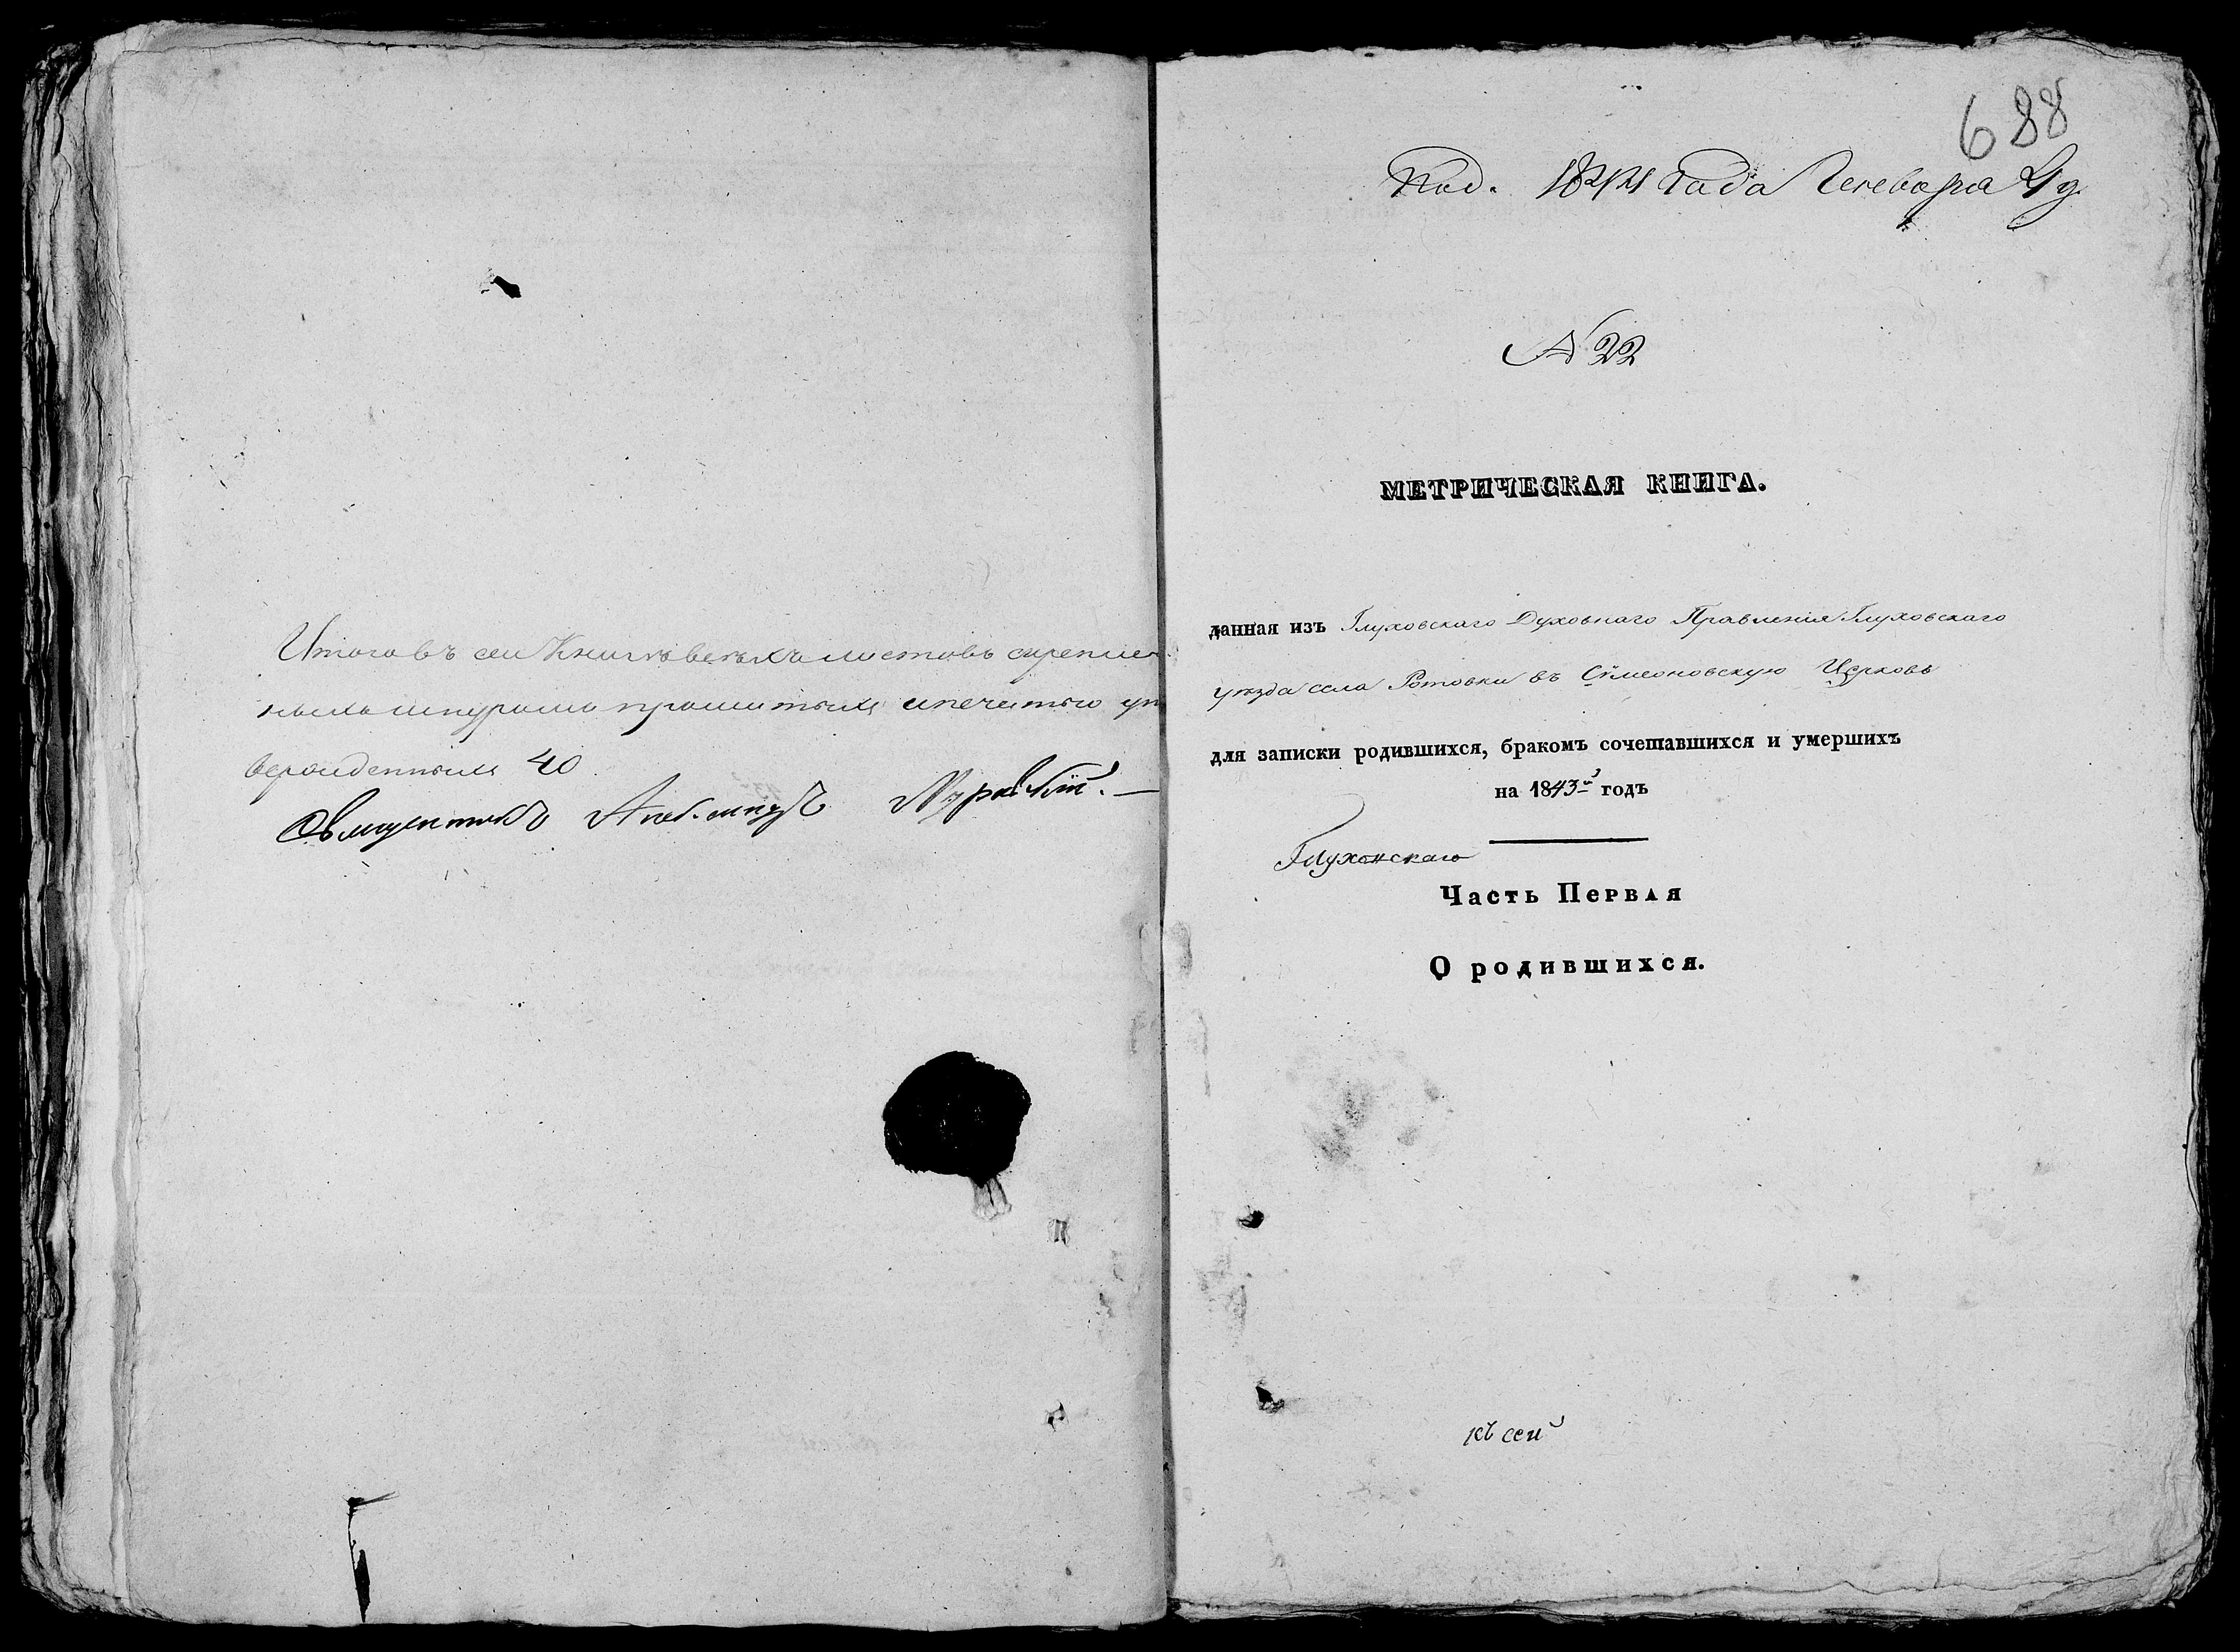 Итого въ сей Книгѣ всѣхъ листовъ скреплен
ныхъ шнуромъ прошитыхъ и печатью ут
вержденныхъ 40
Священникъ
688
Под. 1844 Года Генваря 4 д.
№ 22
МЕТРИЧЕСКАЯ КНИГА.
данная изъ Глуховскаго Духовнаго Правленія Глуховскаго
уѣзда села Ротовки въ Сѵмеоновскую Церковь
для записки родившихся, бракомъ сочетавшихся и умершихъ
на 1843й годъ
Глуховскаго
Часть Первая
О родившихся.
къ сей